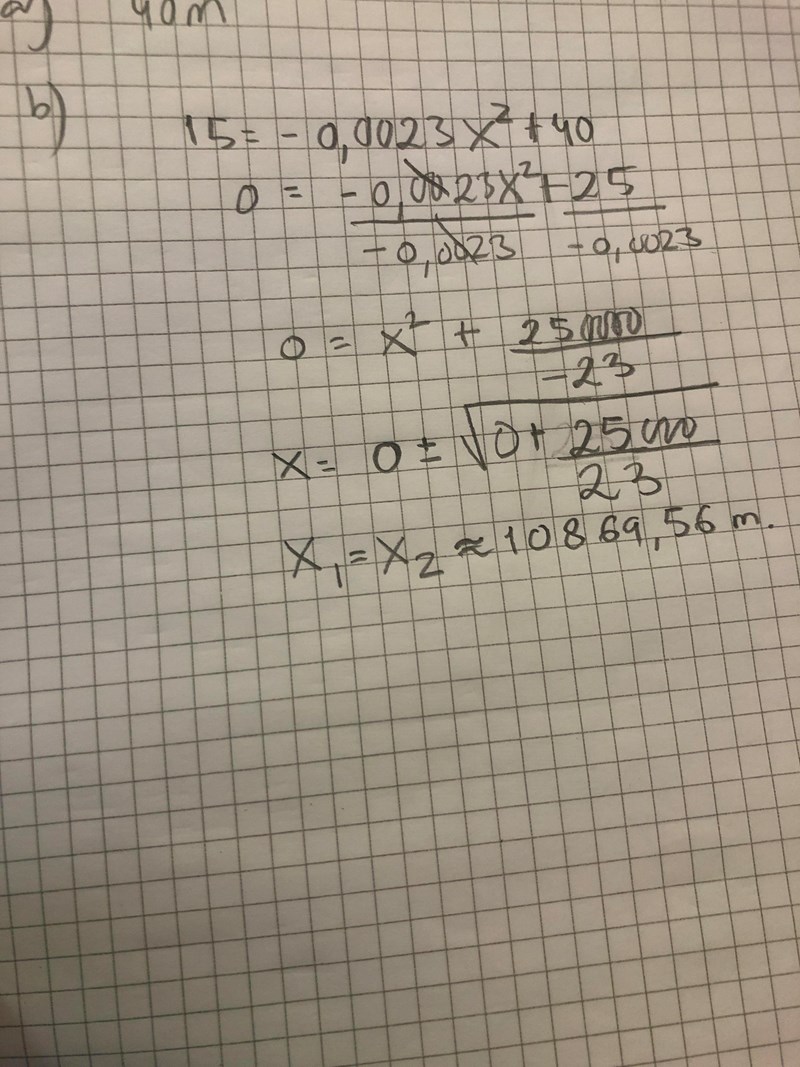 a) 40 m
b)
15 = - 0,0023x² + 40
0 = -0,0023x² + 25
-0,0023 -0,0023
0 = x² + 250000
-23
x = 0 ± √0 + 25000
23
x₁ = x₂ ≈ 10869,56 m.